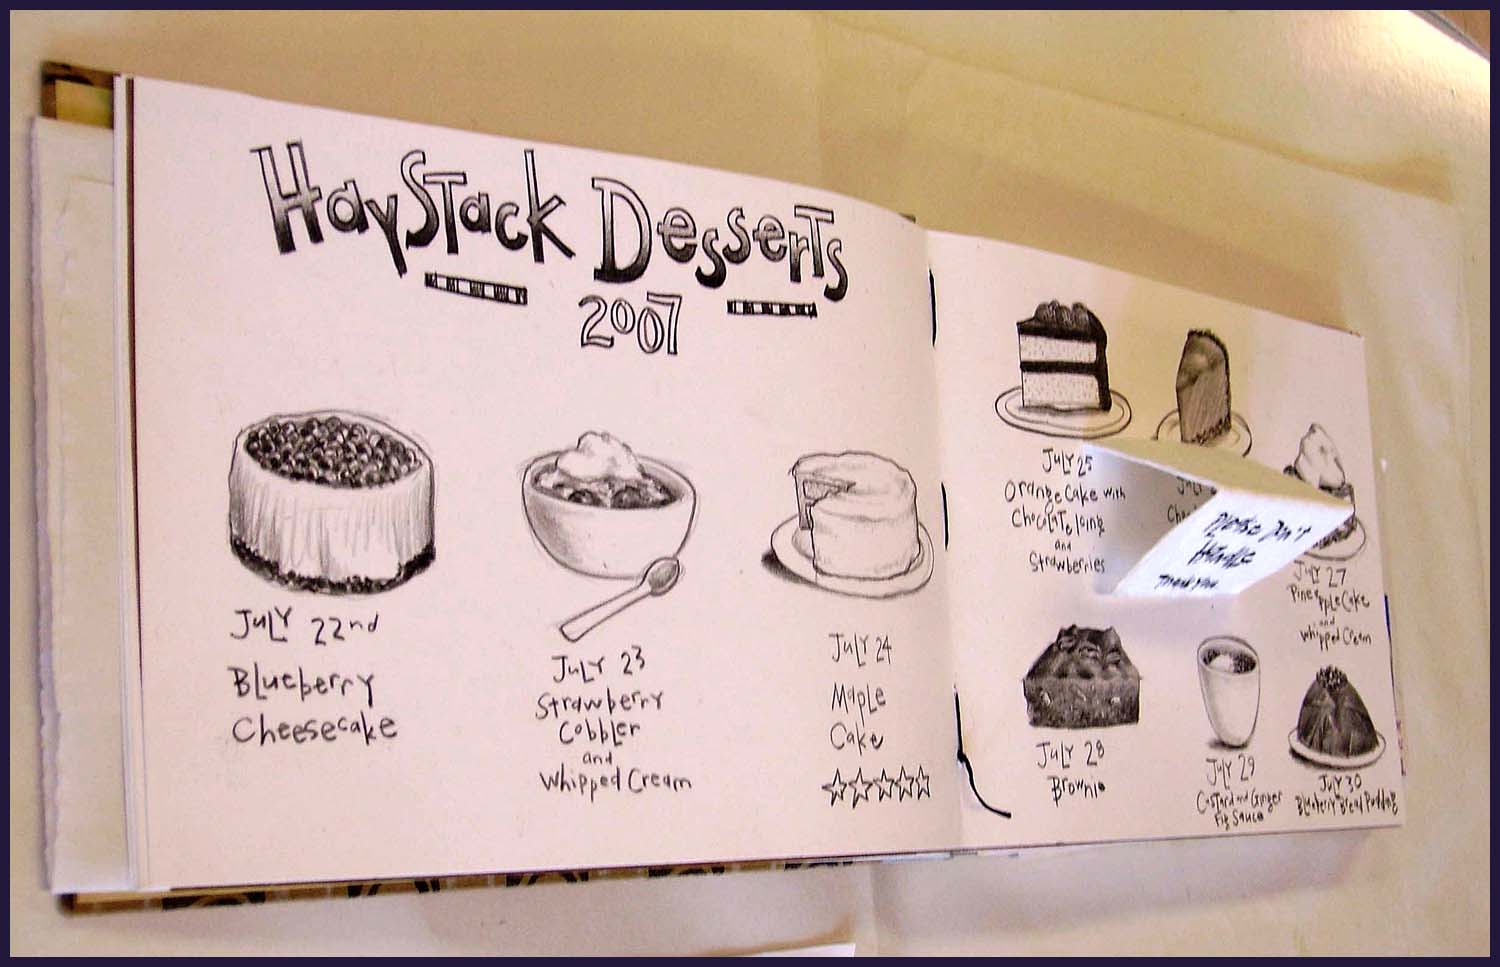 HayStack Desserts
2007
July 22nd
Blueberry
Cheesecake
July 23
Strawberry
Cobbler
and
Whipped Cream
July 24
Maple
Cake
July 25
Orange Cake with
Chocolate Icing
and
Strawberries
July
Please Don't
Handle
Thank you
July 27
Pineapple Cake
and
Whipped Cream
July 28
Brownie
July 29
Custard and Ginger
Fig Sauce
July 30
Blueberry Bread Pudding